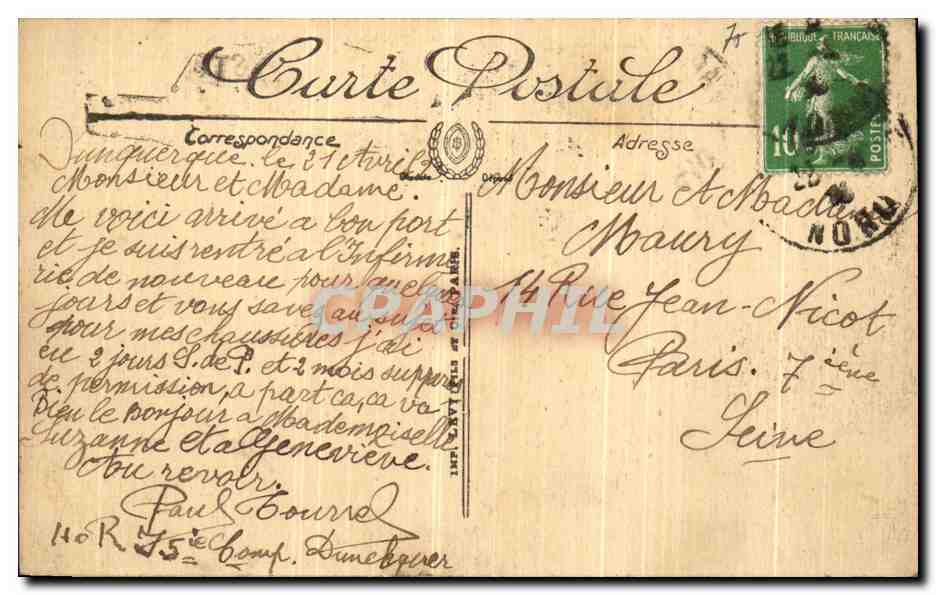 Carte Postale
Correspondance
Adresse
RÉPUBLIQUE FRANÇAISE
10
POSTES
NORD
Dunquerque le 21 Avril
Monsieur et Madame
Me voici arrivé a bon port
et je suis rentré a l'Infirme
rie de nouveau pour quelques
jours et vous savez au sujet
pour mes chaussures j'ai
eu 2 jours S. de P. et 2 mois suppri
de permission, a part ca, ca va
Bien le Bonjour a Mademoiselle
Suzanne et a Geneviève.
Au revoir.
Paul
110 R. 15ie Comp. Dunekquer
IMP. LEVY FILS ET CIE PARIS.
Monsieur et Madame
Maury
14 Rue Jean-Nicot
Paris. 7ième
Seine
CPAPHIL